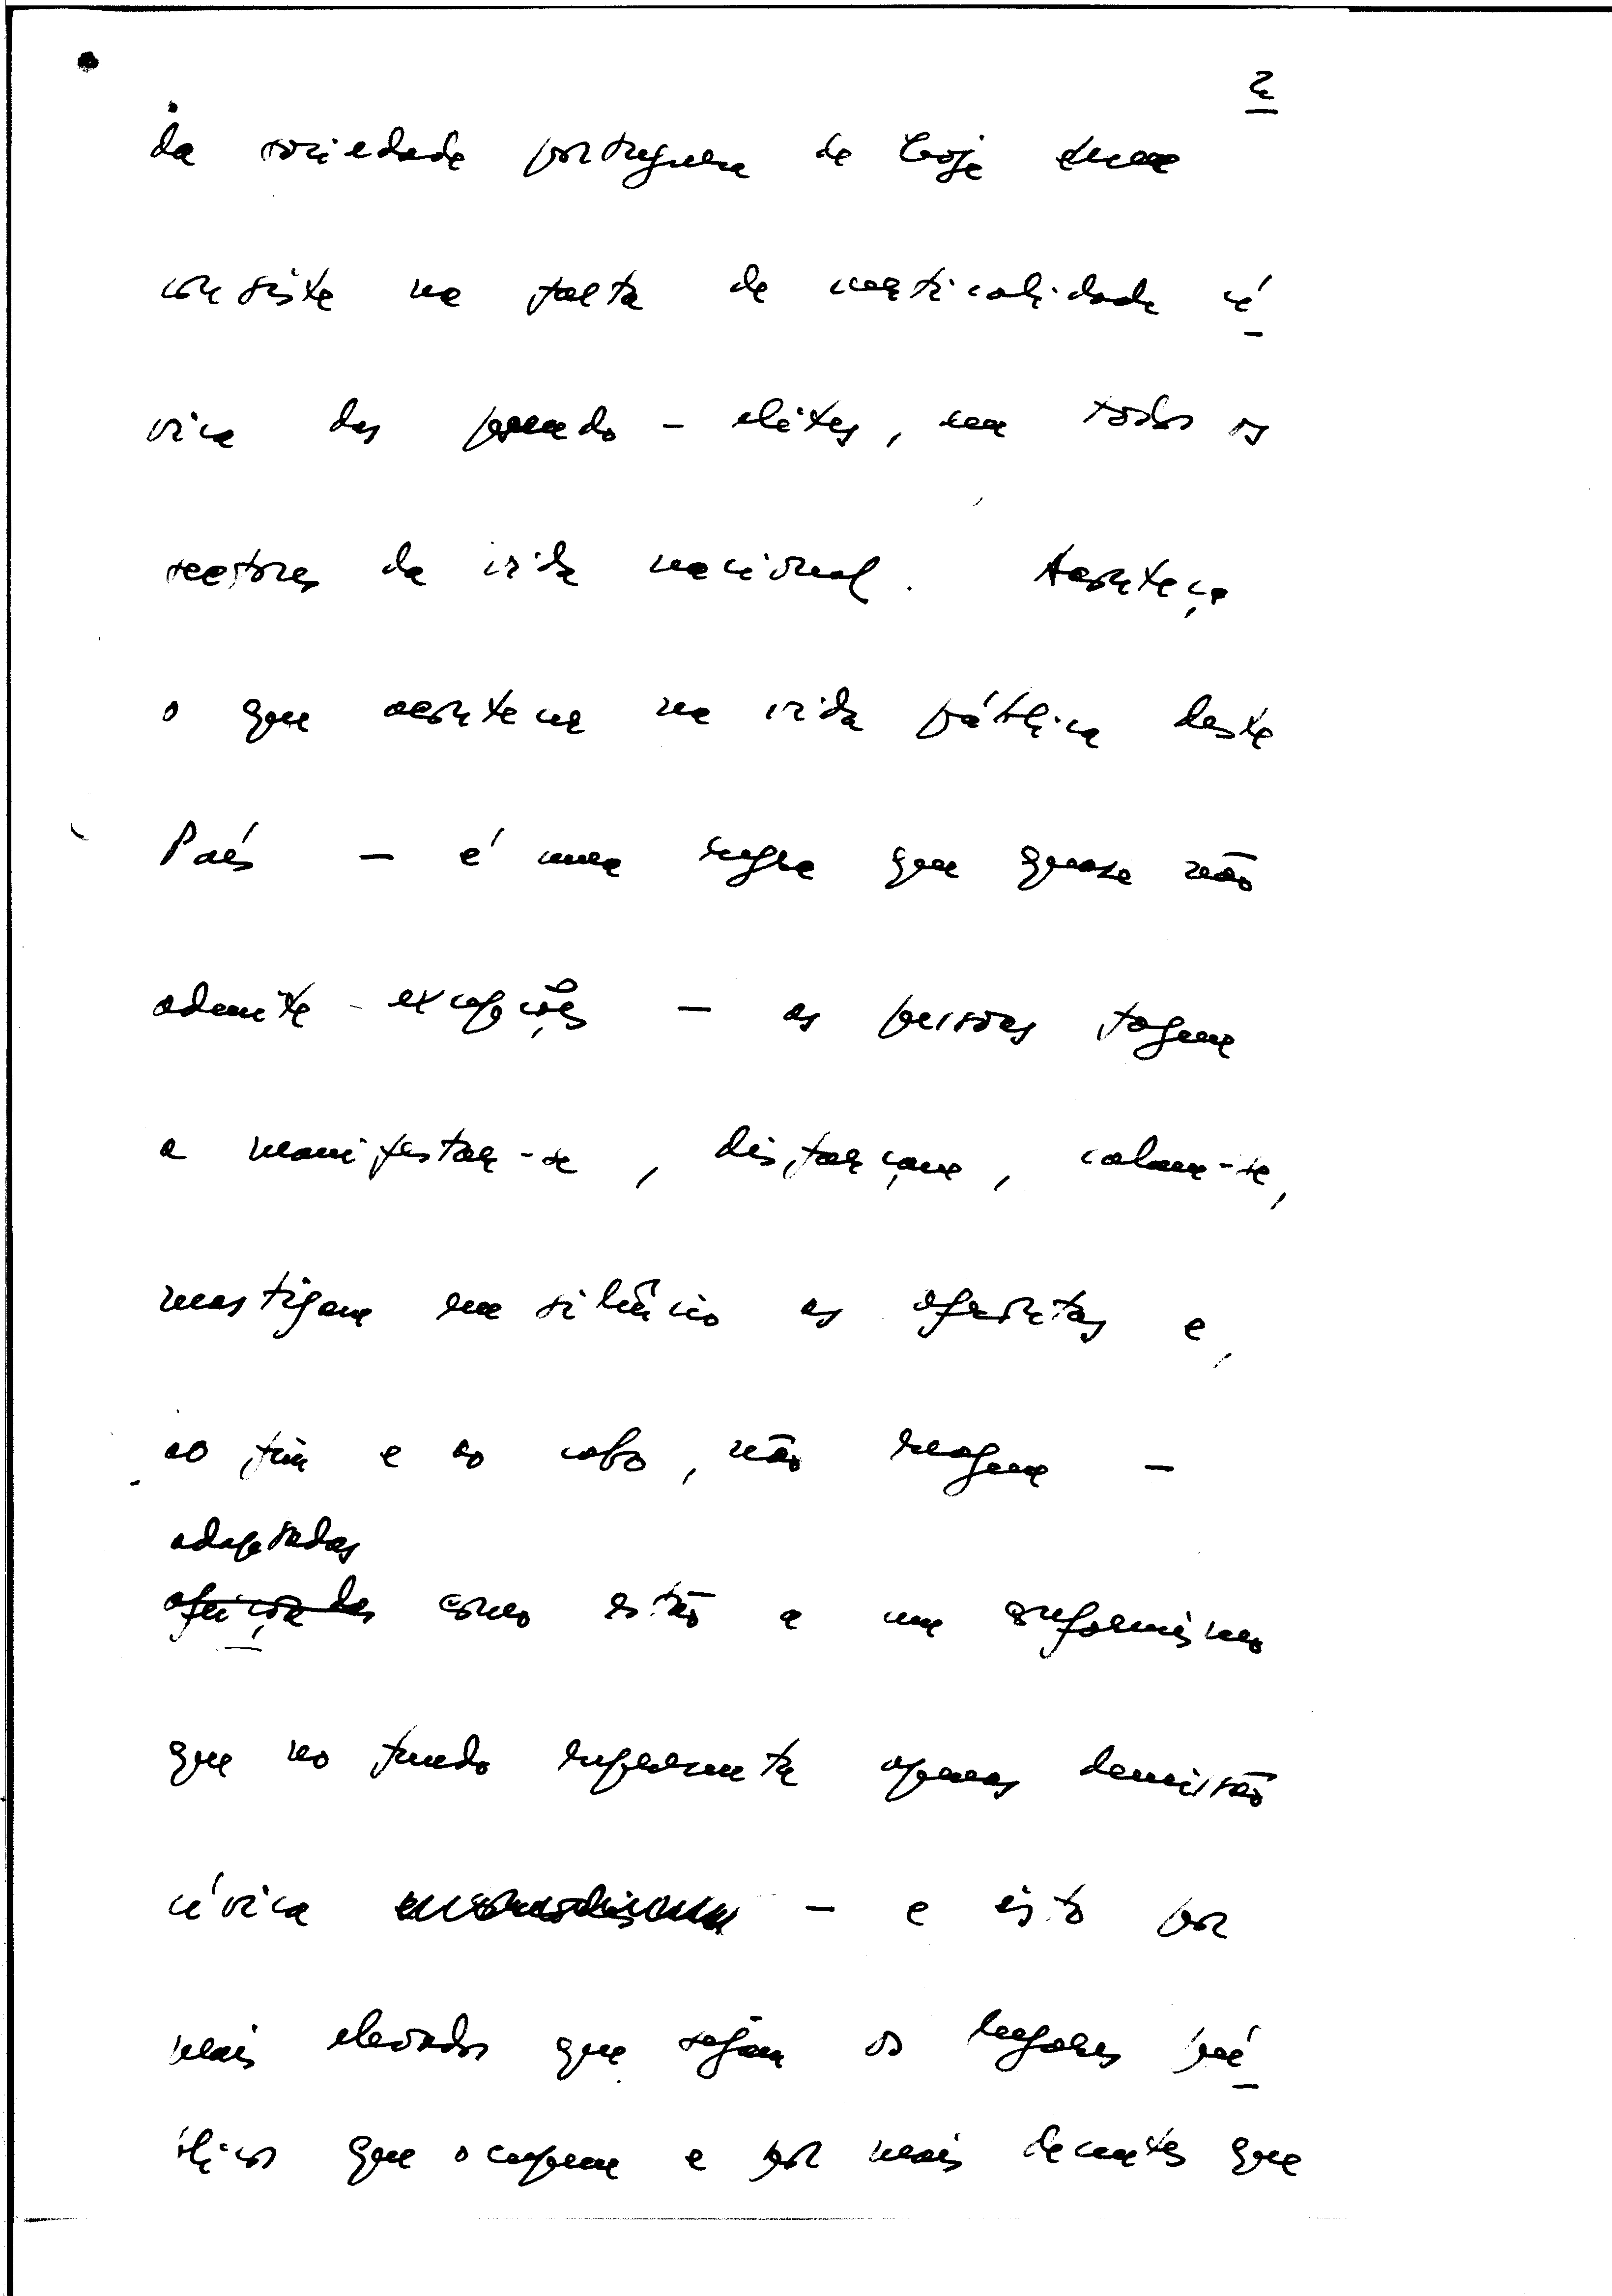 2
da sociedade portuguesa de hoje
consiste na falta de verticalidade cí
vica das pseudo-elites, em todos os
sectores da vida nacional. Aconteça
o que aconteça na vida pública deste
País — é uma regra que quase não
admite excepções — as pessoas fogem
a manifestar-se, disfarçam, calam-se,
mastigam em silêncio as afrontas e,
ao fim e ao cabo, não reagem —
adaptadas
afeiçoadas como estão a um conformismo
que no fundo representa apenas demissão
cívica — e isto por
mais elevados que sejam os lugares pú
blicos que ocupem e por mais decentes que